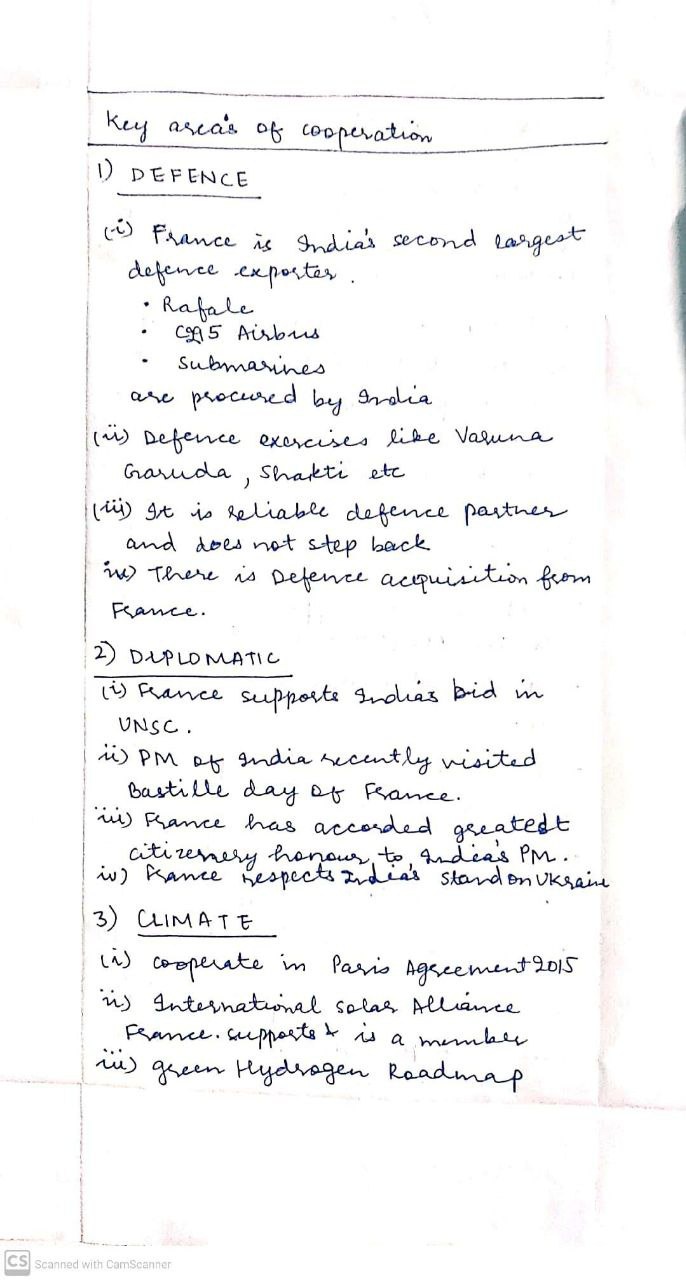 Key area's of cooperation
1) DEFENCE
(i) France is India's second largest
defence exporter.
• Rafale
• C295 Airbus
• Submarines
are procured by India
(ii) Defence exercises like Varuna
Garuda, Shakti etc
(iii) It is reliable defence partner
and does not step back
iv) There is Defence acquisition from
France.
2) DIPLOMATIC
(i) France supports India's bid in
UNSC.
ii) PM of India recently visited
Bastille day of France.
iii) France has accorded greatest
citizenery honour to India's PM.
iv) France respects India's stand on Ukraine
3) CLIMATE
(i) cooperate in Paris Agreement 2015
ii) International solar Alliance
France. supports & is a member
iii) green Hydrogen Roadmap
CS Scanned with CamScanner